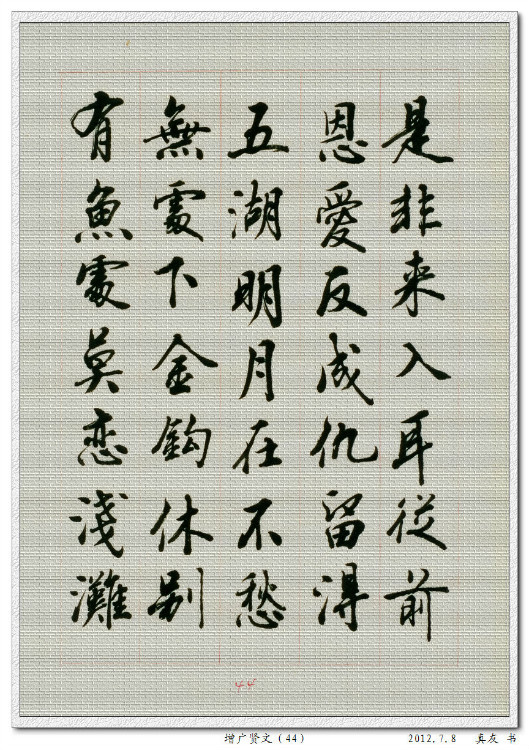 是非来入耳從前
恩愛反成仇留得
五湖明月在不愁
無處下金鈎休别
有魚處莫恋淺灘
44
增广贤文（44） 2012.7.8 真友 书